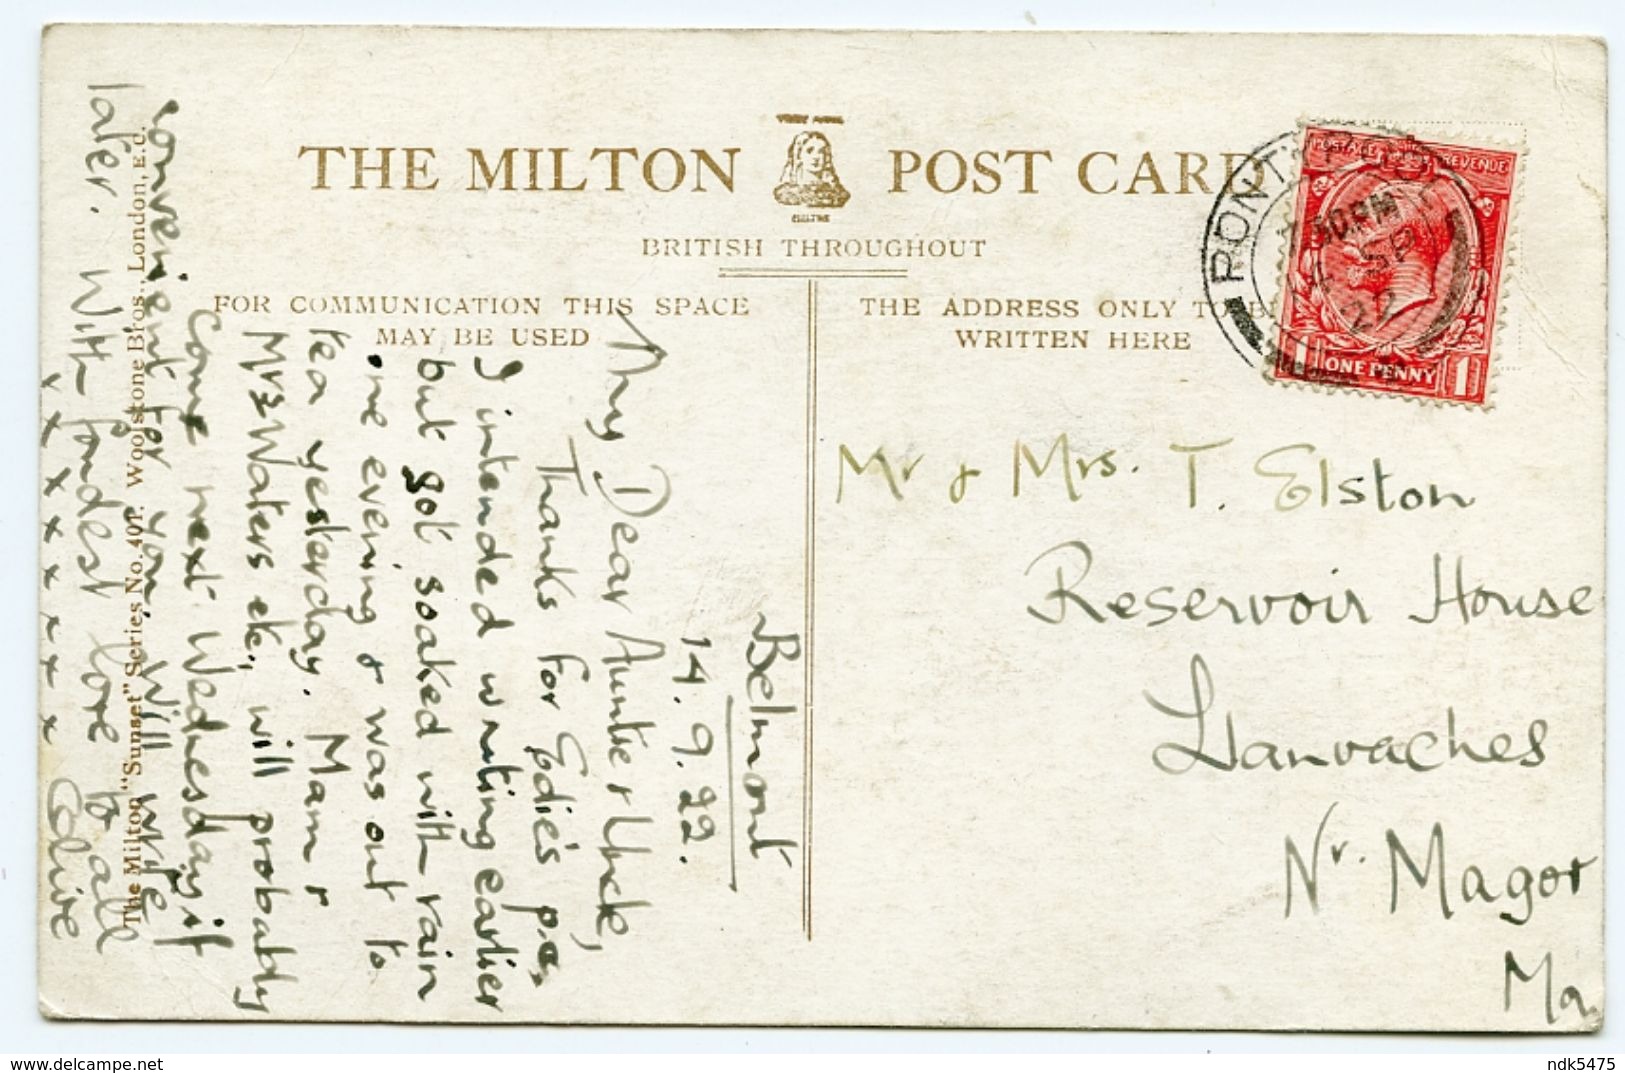 THE MILTON POST CARD
BRITISH THROUGHOUT
FOR COMMUNICATION THIS SPACE
MAY BE USED
THE ADDRESS ONLY TO BE
WRITTEN HERE
POSTAGE REVENUE
ONE PENNY
1 1
PONTYPOOL
30 PM
14 SP
22
Belmont
14.9.22.
My Dear Auntie & Uncle,
Thanks for Edie's p.c,
I intended writing earlier
but got soaked with rain
one evening & was out to
tea yesterday. Mam &
Mrs Waters etc, will probably
Come next Wednesday if
convenient for you. Will write
later. With fondest love to all
x x x x x x x x x Colive
Mr & Mrs. T. Elston
Reservoir House
Llanvaches
Nr. Magor
Mon
The Milton "Sunset" Series No. 401. Woolstone Bros., London, E.C.
delcampe.net
ndk5475